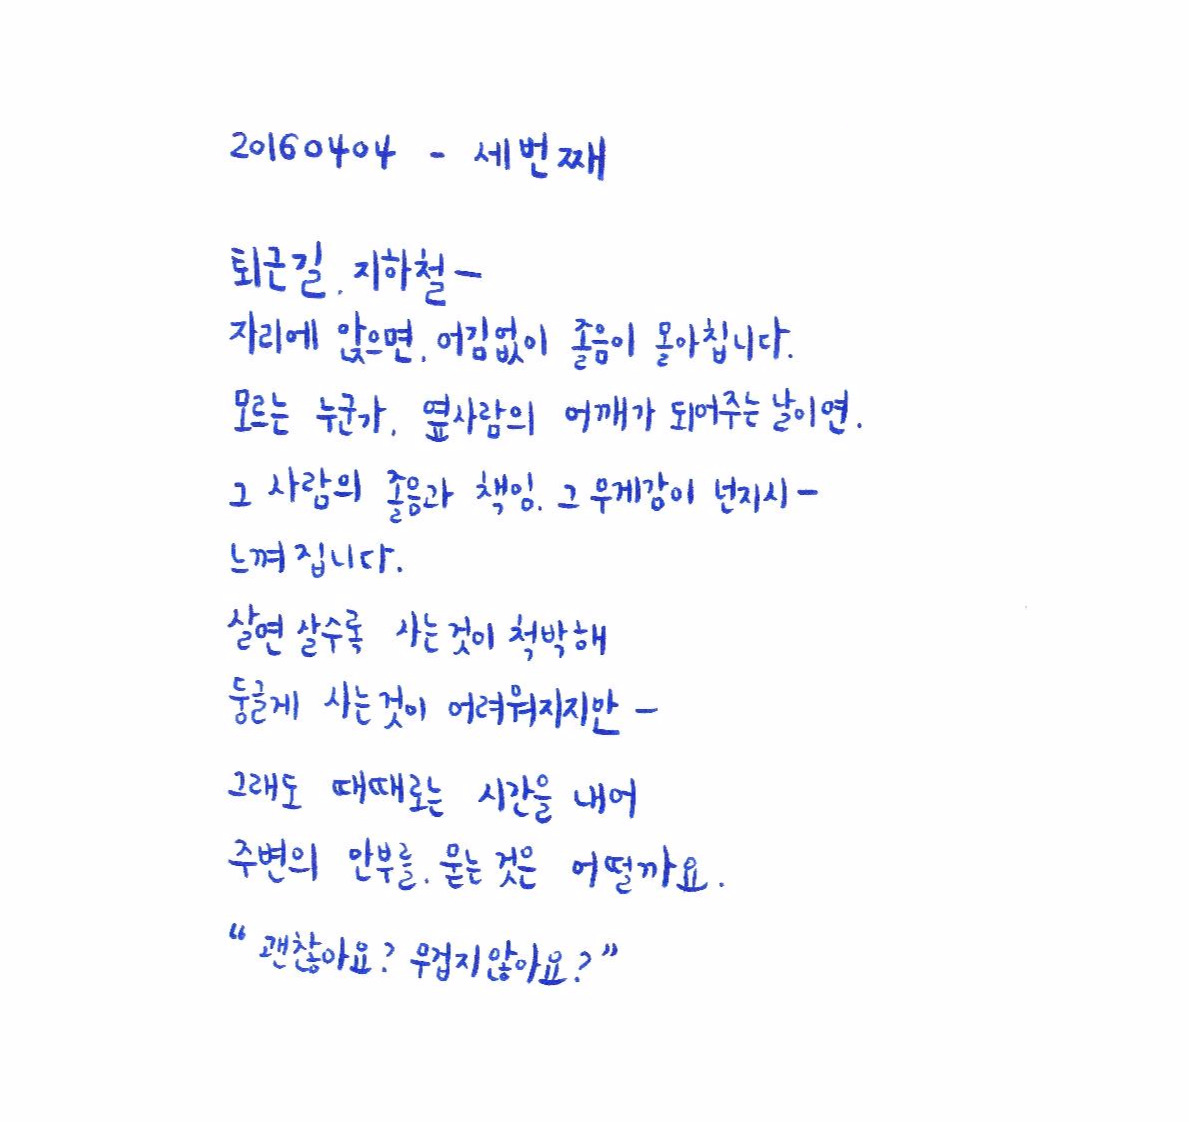 20160404 - 세번째
퇴근길. 지하철-
자리에 앉으면. 어김없이 졸음이 몰아칩니다.
모르는 누군가. 옆사람의 어깨가 되어주는 날이면.
그 사람의 졸음과 책임. 그 무게감이 넌지시-
느껴집니다.
살면 살수록 사는것이 척박해
둥글게 사는것이 어려워지지만-
그래도 때때로는 시간을 내어
주변의 안부를. 묻는 것은 어떨까요.
“괜찮아요? 무겁지않아요?”